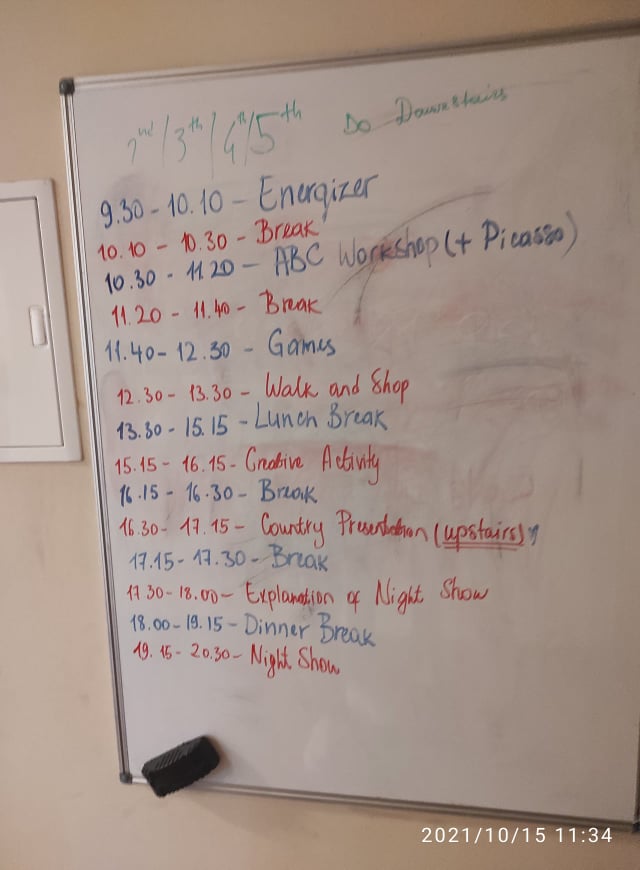 2nd / 3th / 4th / 5th Do Downstairs
9.30 - 10.10 - Energizer
10.10 - 10.30 - Break
10.30 - 11.20 - ABC Workshop (+ Picasso)
11.20 - 11.40 - Break
11.40 - 12.30 - Games
12.30 - 13.30 - Walk and Shop
13.30 - 15.15 - Lunch Break
15.15 - 16.15 - Creative Activity
16.15 - 16.30 - Break
16.30 - 17.15 - Country Presentation (upstairs)
17.15 - 17.30 - Break
17.30 - 18.00 - Explanation of Night Show
18.00 - 19.15 - Dinner Break
19.15 - 20.30 - Night Show
2021/10/15 11:34